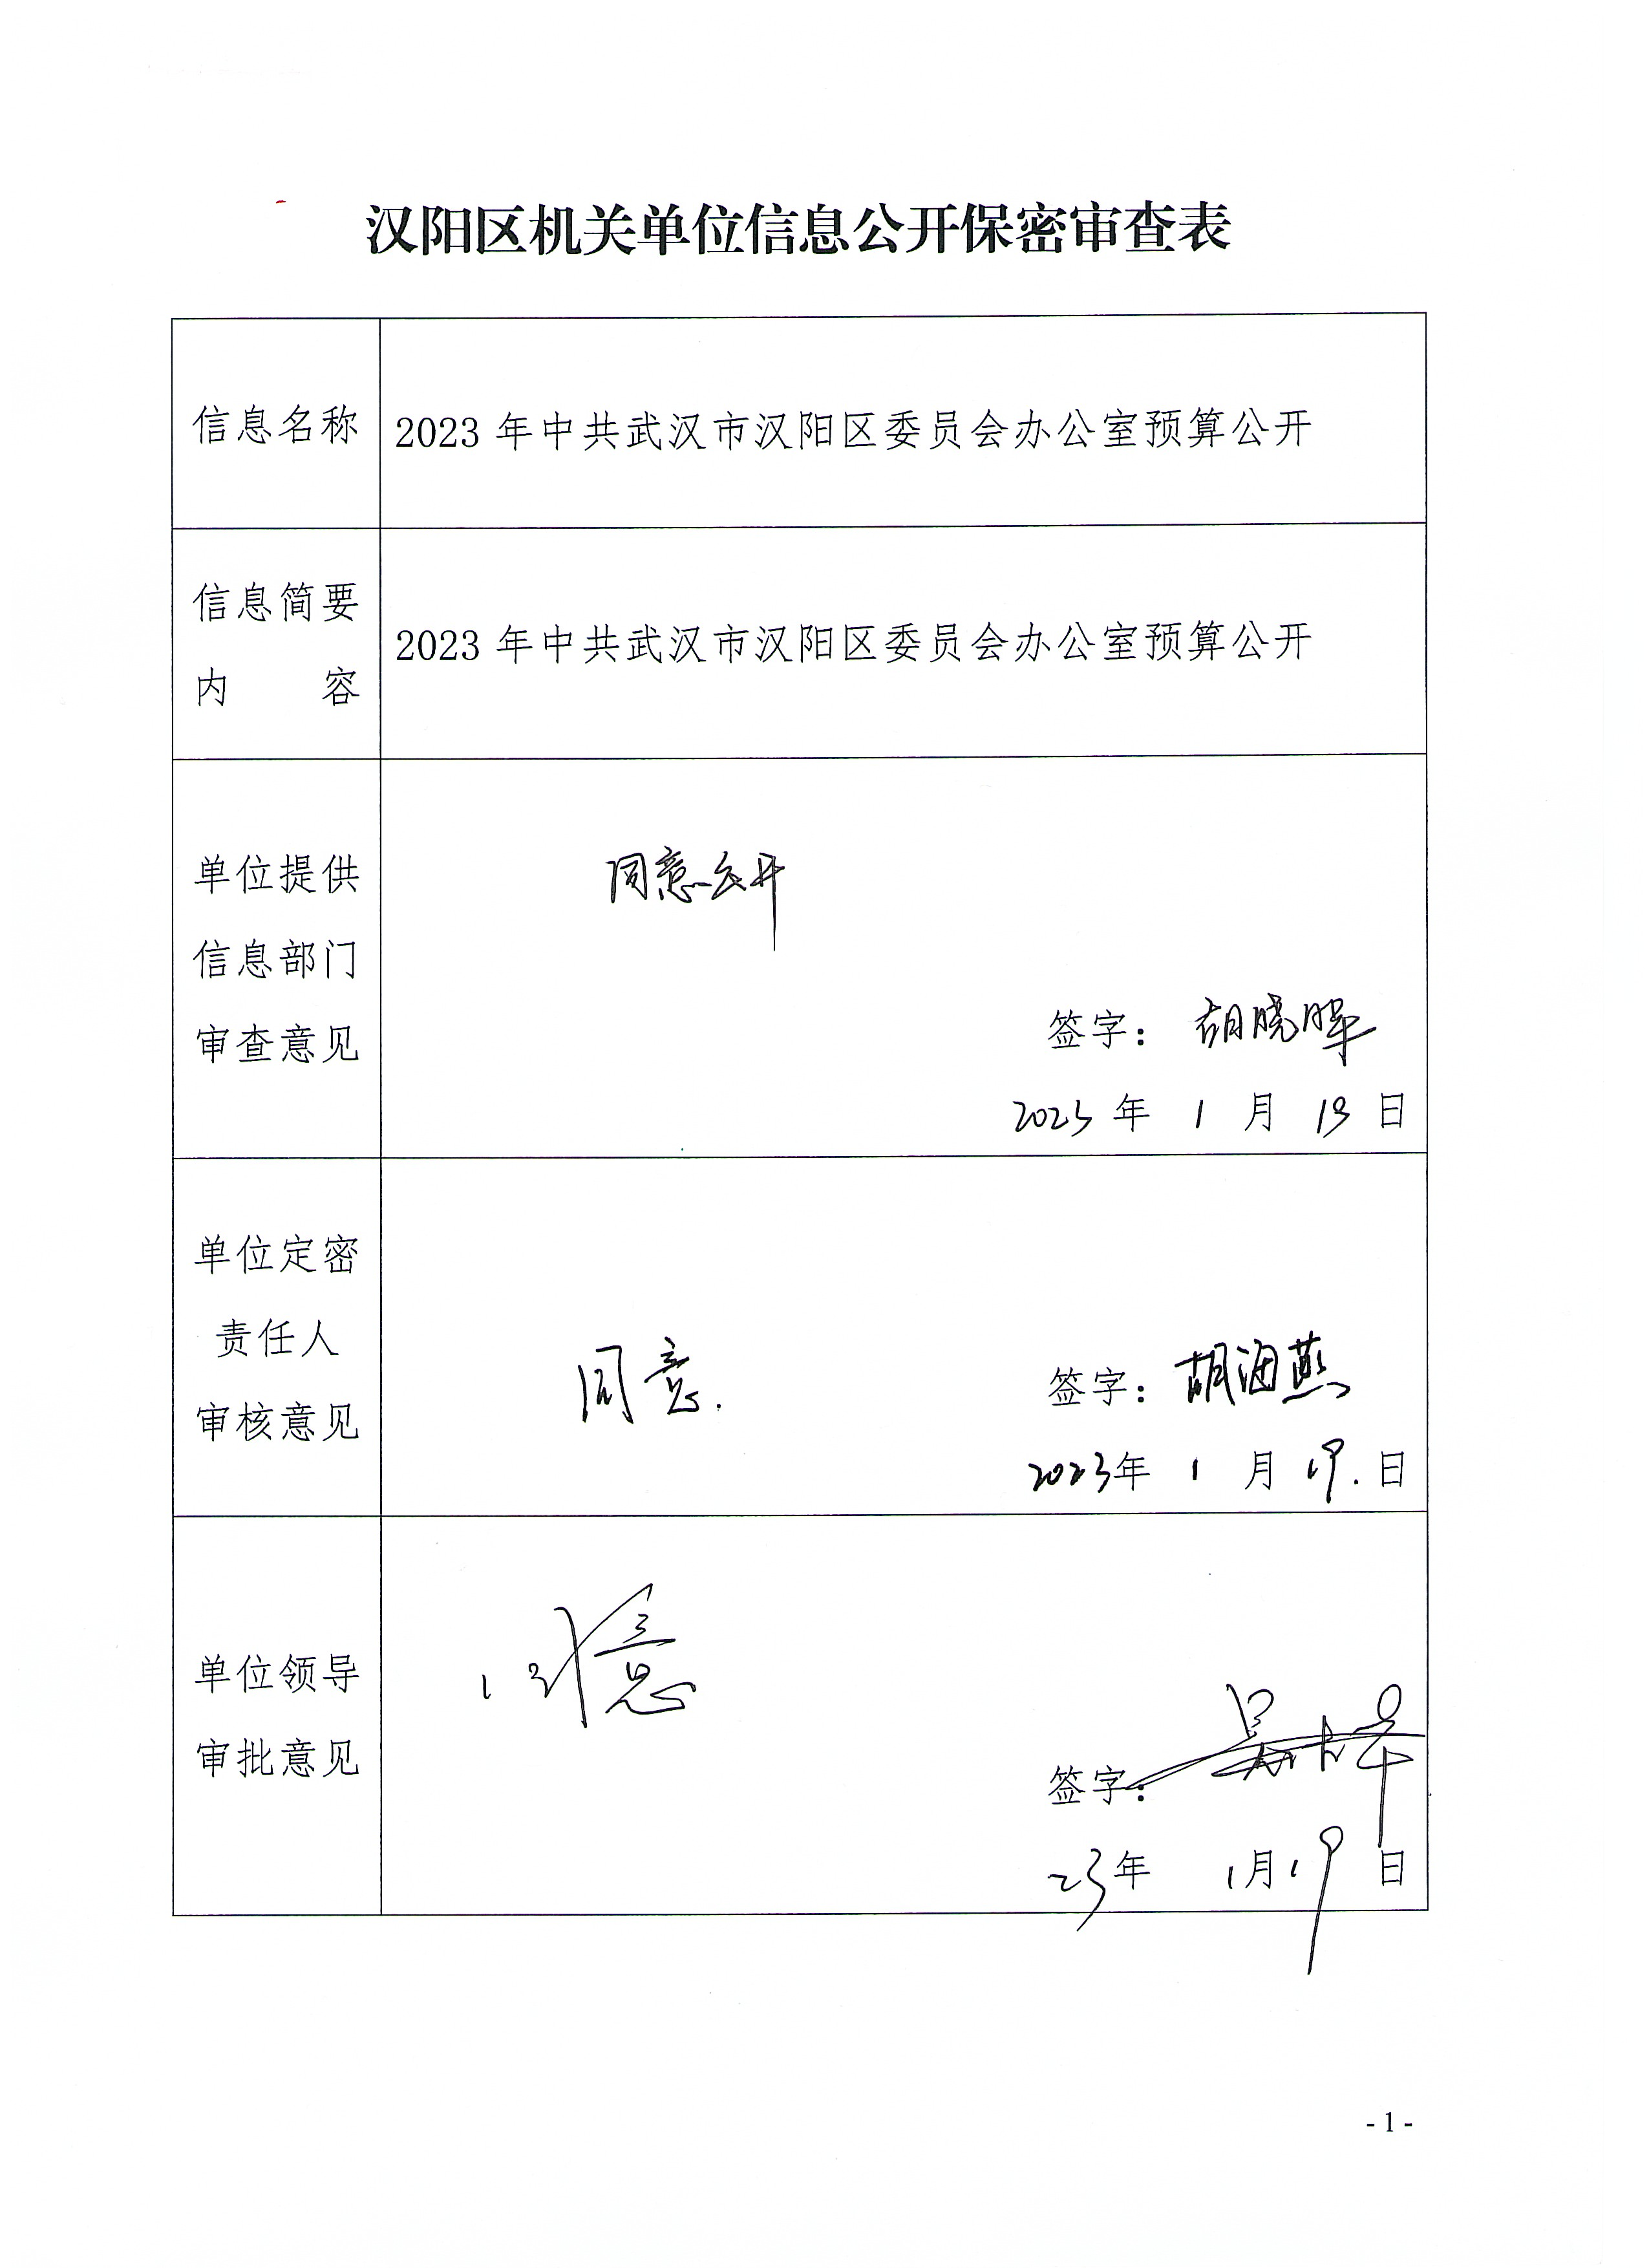 汉阳区机关单位信息公开保密审查表
信息名称
2023 年中共武汉市汉阳区委员会办公室预算公开
信息简要
内 容
2023 年中共武汉市汉阳区委员会办公室预算公开
单位提供
信息部门
审查意见
同意公开
签字: 胡晓晖
2023 年 1 月 19 日
单位定密
责任人
审核意见
同意.
签字: 胡海燕
2023年 1 月 19. 日
单位领导
审批意见
同意
签字:
23年 1月19日
- 1 -